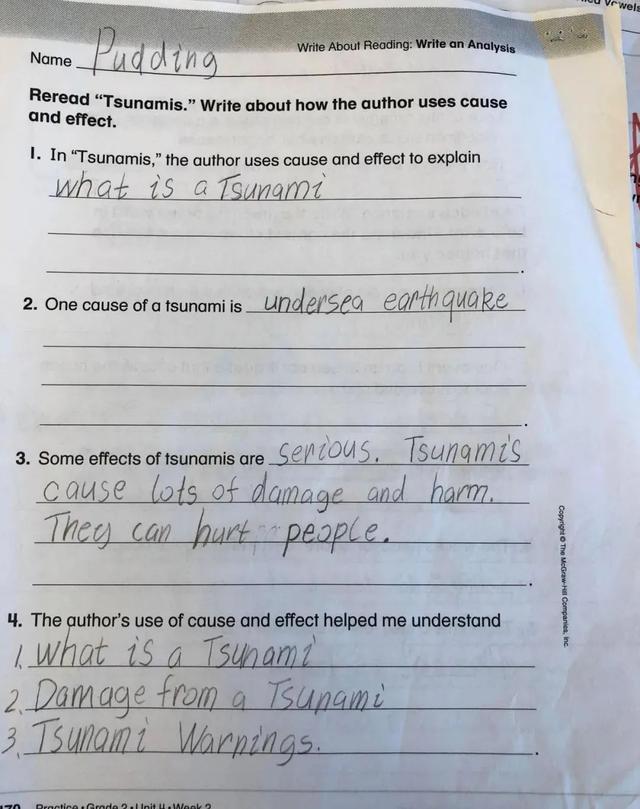 Vowels
Write About Reading: Write an Analysis
Name Pudding
Reread “Tsunamis.” Write about how the author uses cause
and effect.
1. In “Tsunamis,” the author uses cause and effect to explain
what is a Tsunami
.
2. One cause of a tsunami is undersea earthquake
.
3. Some effects of tsunamis are serious. Tsunamis
cause lots of damage and harm.
They can hurt people.
.
4. The author’s use of cause and effect helped me understand
1. what is a Tsunami
2. Damage from a Tsunami
3. Tsunami Warnings.
.
Copyright © The McGraw-Hill Companies, Inc.
170 Practice • Grade 2 • Unit 4 • Week 2